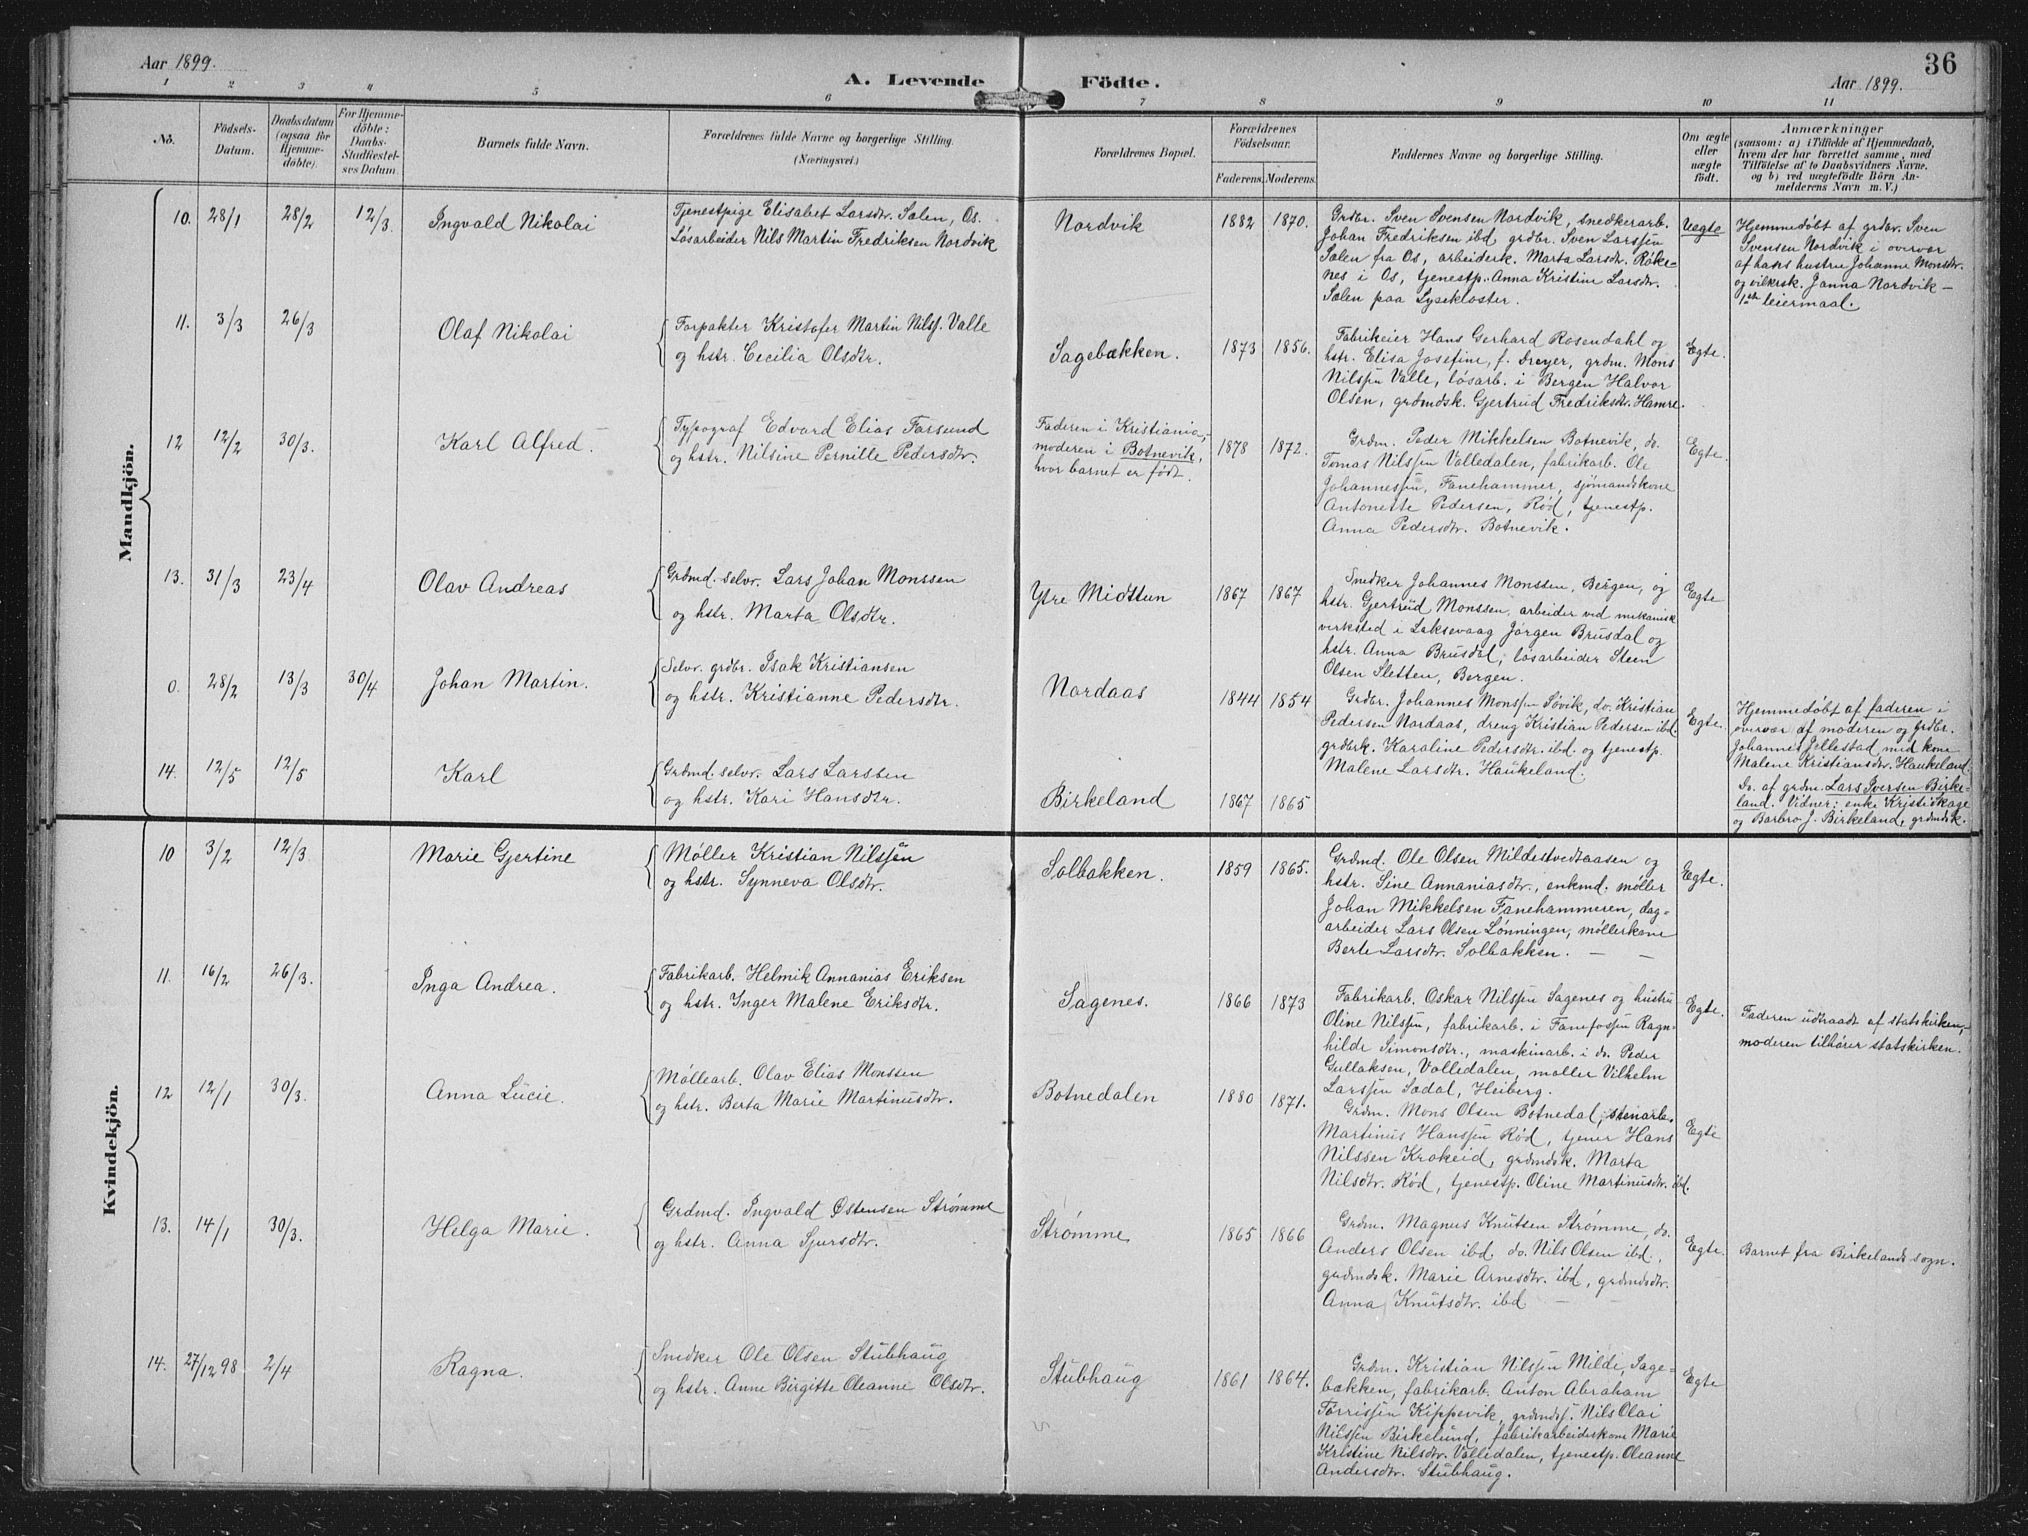 Aar 1899.
A. Levende Födte.
Aar 1899.
36
1 2 3 4 5 6 7 8 9 10 11
No.
Födsels-
Datum.
Daabsdatum
(ogsaa for
Hjemme-
döbte).
For Hjemme-
döbte:
Daabs-
Stadfæstel-
ses Datum.
Barnets fulde Navn.
Forældrenes fulde Navne og borgerlige Stilling.
(Næringsvei.)
Forældrenes Bopæl.
Forældrenes
Födselsaar.
Faderens. Moderens.
Faddernes Navne og borgerlige Stilling.
Om ægte
eller
uægte
födt.
Anmærkninger
(saasom: a) i Tilfælde af Hjemmedaab,
hvem der har forrettet samme, med
Tilföielse af to Daabsvidners Navne,
og b) ved uægtefödte Börn An-
melderens Navn m. V.)
Mandkjön.
10. 28/1 28/2 12/3 Ingvald Nikolai
Tjenestpige Elisabet Larsdtr. Sælen, Os.
Løsarbeider Nils Martin Fredriksen Nordvik
Nordvik 1882 1870.
Grdbr. Sven Svensen Nordvik, snedkerarb.
Johan Fredriksen ibd, grdbr. Sven Larssen
Sælen fra Os, arbeiderk. Marta Larsdtr. Røke-
nes i Os, tjenestp. Anna Kristine Larsdtr.
Sælen paa Lysekloster.
Uægte
Hjemmedøbt af grdbr. Sven
Svensen Nordvik i overvær
af hans hustru Johanne Monsdtr.
og vilkrsk. Janna Nordvik —
1ste leiermaal.
11. 3/3 26/3 Olaf Nikolai
Forpakter Kristofer Martin Nilss. Valle
og hstr. Cecilia Olsdtr.
Sagebækken. 1873 1856.
Fabrikeier Hans Gerhard Rosendahl og
hstr. Elisa Josefine, f. Dreyer, grdm. Mons
Nilssen Valle, løsarb. i Bergen Halvor
Olsen, grdmdsk. Gjertrud Fredriksdtr. Hamre.
Egte.
12 12/2 30/3. Karl Alfred
Typograf Edvard Elias Farsund
og hstr. Nilsine Pernille Pedersdtr.
Faderen i Kristiania,
moderen i Botnevik,
hvor barnet er født.
1878 1872.
Grdm. Peder Mikkelsen Botnevik, do.
Tomas Nilssen Valledalen, fabrikarb. Ole
Johannessen, Fanehammer, sjømandskone
Antonette Pedersen, Rød, tjenestp.
Anna Pedersdtr. Botnevik.
Egte.
13. 31/3 23/4 Olav Andreas
Grdmd. selvr. Lars Johan Monssen
og hstr. Marta Olsdtr.
Ytre Midttun 1867 1867
Snedker Johannes Monssen, Bergen, og
hstr. Gjertrud Monssen, arbeider ved mekanisk
verksted i Laksevaag Jørgen Brusdal og
hstr. Anna Brusdal, løsarbeider Steen
Olsen Sletten, Bergen.
Egte
0. 28/2 13/3 30/4 Johan Martin.
Selvr. grdbr. Isak Kristiansen
og hstr. Kristianne Pedersdtr.
Nordaas 1844 1854
Grdbr. Johannes Monssen Søvik, do. Kristian
Pedersen Nordaas, dreng Kristian Pedersen ibd.
grdbrk. Karaline Pedersdtr. ibd. og tjenestp.
Malene Larsdtr. Haukeland.
Egte.
Hjemmedøbt af faderen i
overvær af moderen og grdbr.
Johannes Jellestad med kone
Malene Kristiansdtr. Haukeland
14. 12/5 12/5 Karl
Grdmd. selvr. Lars Larssen
og hstr. Kari Hansdtr.
Birkeland 1867 1865
Do. af grdm. Lars Iversen Birke-
land. Vidner: enke Kristi Skage
og Barbro J. Birkeland, grdmdsk.
Kvindekjön.
10 3/2 12/3. Marie Gjertine
Møller Kristian Nilssen
og hstr. Synneva Olsdtr.
Solbakken. 1859 1865.
Grdmd. Ole Olsen Mildestvedtaasen og
hstr. Sine Annaniasdtr., enkmd. møller
Johan Mikkelsen Fanehammeren, dag-
arbeider Lars Olsen Lønningen, møllerkone
Berte Larsdtr. Solbakken. — —
Egte.
11. 16/2 26/3. Inga Andrea.
Fabrikarb. Helmik Annanias Eriksen
og hstr. Inger Malene Eriksdtr.
Sagenes. 1866 1873
Fabrikarb. Oskar Nilssen Sagenes og hustru
Oline Nilssen, fabrikarb. i Fanefossen Ragn-
hilde Simonsdtr., maskinarb. i do. Peder
Gullaksen, Valledalen, møller Vilhelm
Larssen Sædal, Heiberg.
Egte.
Faderen udtraadt af statskirken,
moderen tilhører statskirken.
12 12/1 30/3. Anna Lucie.
Møllearb. Olav Elias Monssen
og hstr. Berta Marie Martinusdtr.
Botnedalen 1880 1871.
Grdm. Mons Olsen Botnedal, stenarb.
Martinus Hanssen Rød, tjener Hans
Nilssen Krokeid, grdmdsk. Marta
Nilsdtr. Rød, tjenestp. Oline Martinusdtr. ibd.
Egte
13. 14/1 30/3. Helga Marie.
Grdmd. Ingvald Østensen Strømme
og hstr. Anna Sjursdtr.
Strømme 1865 1866
Grdm. Magnus Knutsen Strømme, do.
Anders Olsen ibd. do. Nils Olsen ibd.,
grdmdsk. Marie Arnesdtr. ibd, grdmdsdtr.
Anna Knutsdtr. ibd — —
Egte.
Barnet fra Birkelands sogn.
14. 27/12 98 2/4 Ragna.
Snedker Ole Olsen Stubhaug
og hstr. Anne Birgitte Oleanne Olsdtr.
Stubhaug 1861 1864.
Grdm. Kristian Nilssen Milde, Sage-
bækken, fabrikarb. Anton Abraham
Tørrissen Kippevik, grdmdss. Nils Olai
Nilssen Birkelund, fabrikarbeiderkone Marie
Kristine Nilsdtr. Valledalen, tjenestp. Oleanne
Andersdtr. Stubhaug.
Egte